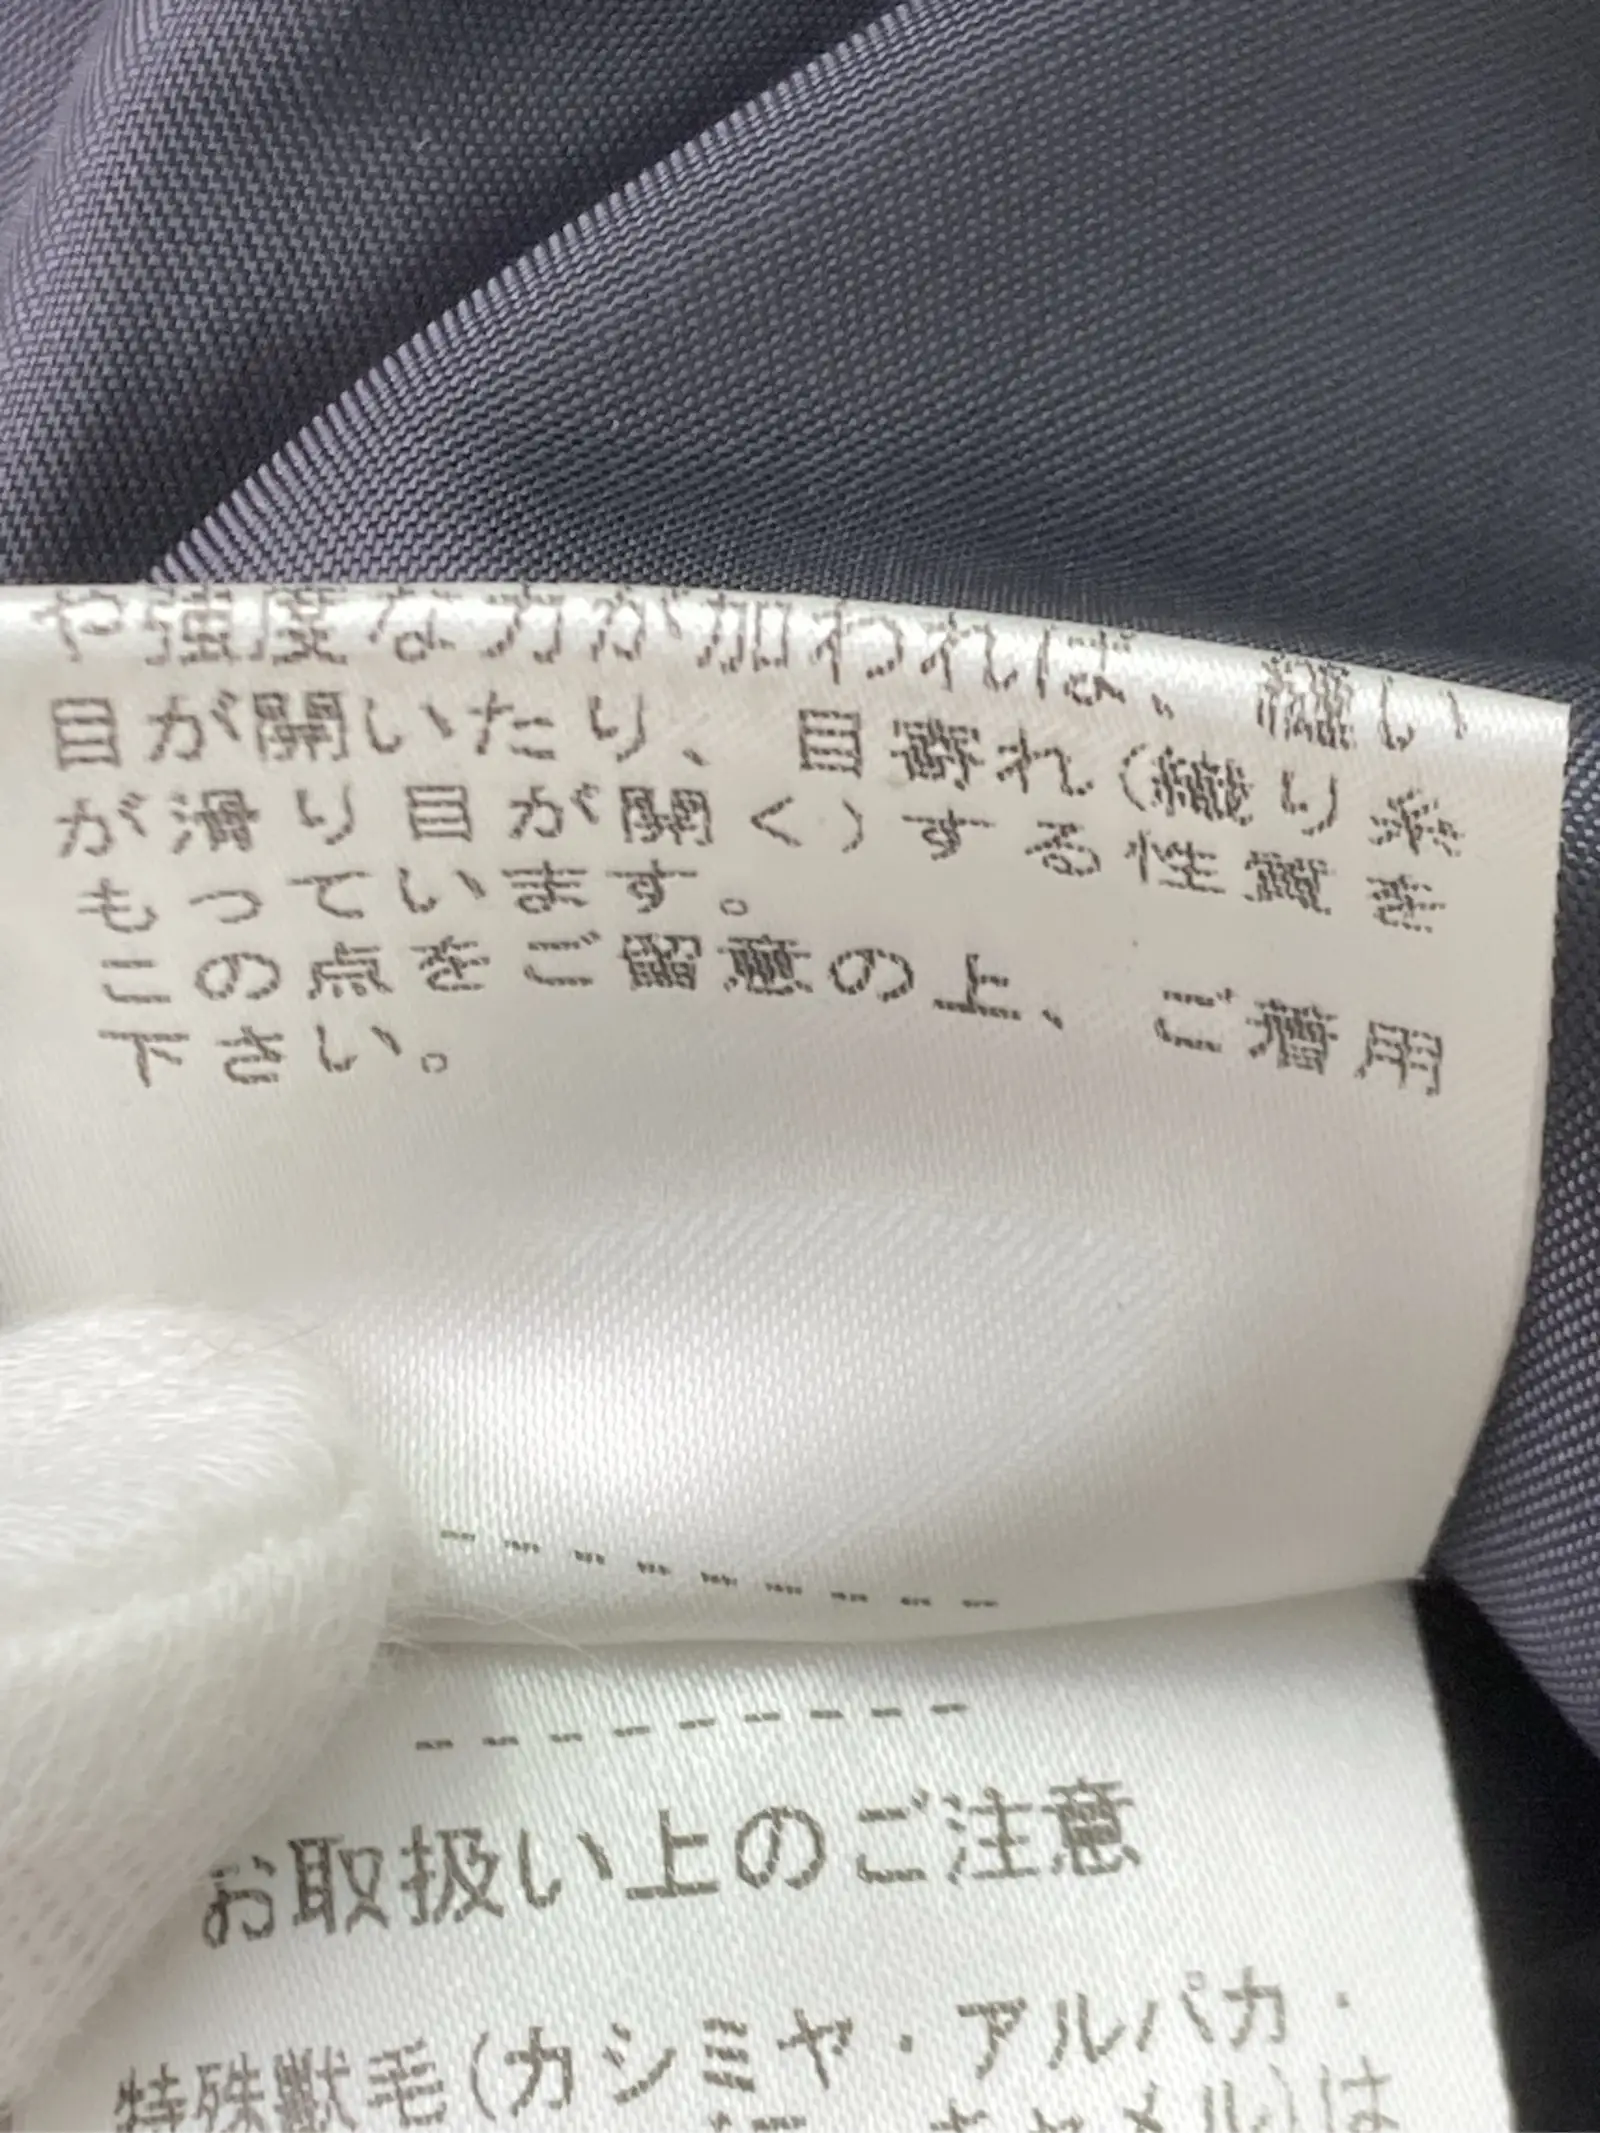 や強度な力が加われば、縫い
目が開いたり、目寄れ(織り糸
が滑り目が開く)する性質を
もっています。
この点をご留意の上、ご着用
下さい。
お取扱い上のご注意
特殊獣毛(カシミヤ・アルパカ・
キャメル)は